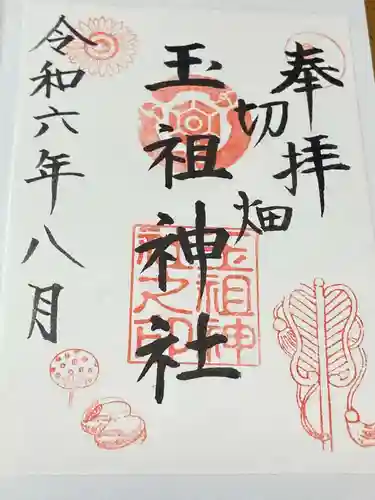 奉拝
切畑
玉祖神社
玉祖神社之印
令和六年八月